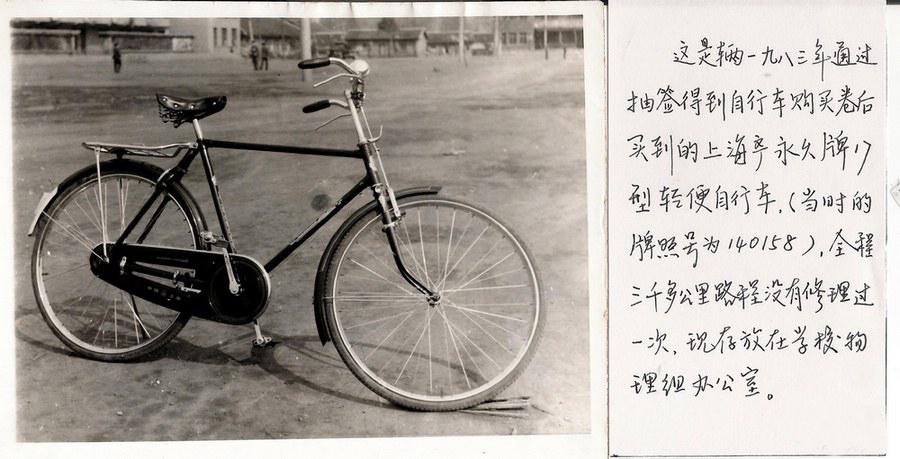 这是辆一九八三年通过
抽签得到自行车购买卷后
买到的上海产永久牌17
型轻便自行车,(当时的
牌照号为140158),全程
三千多公里路程没有修理过
一次,现存放在学校物
理组办公室。